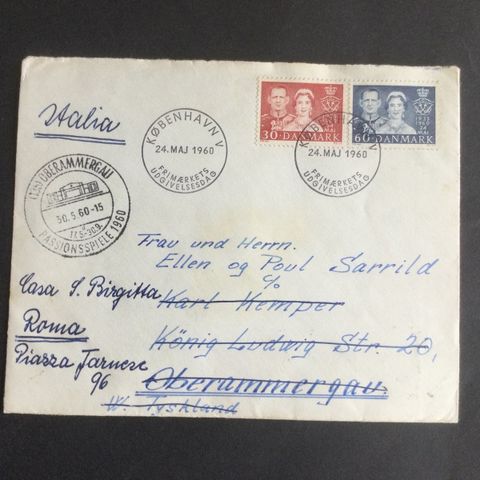 Italia
30 DANMARK
60 DANMARK
1935
1960
24
MAJ
KØBENHAVN V
24. MAJ 1960
FRIMÆRKETS
UDGIVELSESDAG
KØBENHAVN V
24. MAJ 1960
FRIMÆRKETS
UDGIVELSESDAG
OBERAMMERGAU
30.5.60-15
PASSIONSSPIELE 1960
Frau und Herrn.
Ellen og Poul Sarrild
c/o
Casa S. Birgitta
Karl Kemper
Roma
König Ludwig Str. 20,
Piazza Farnese
96
Oberammergau.
W. Tyskland